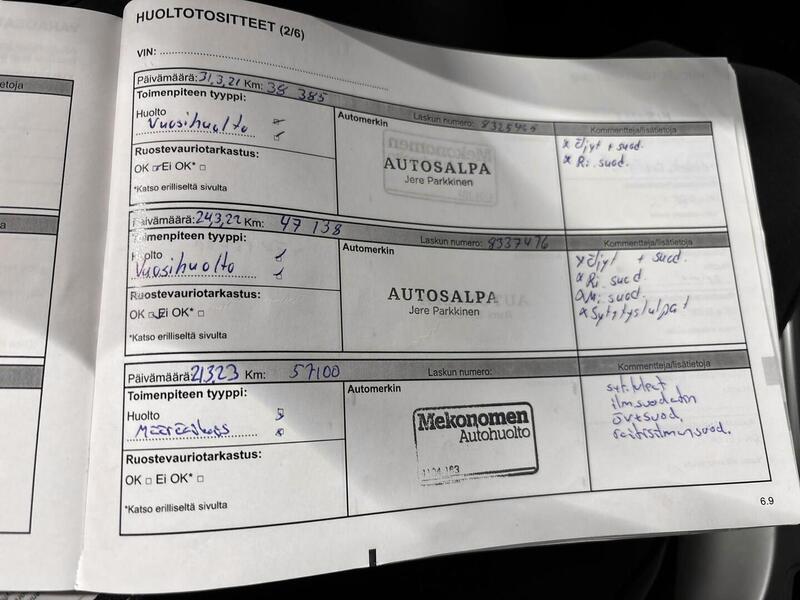 HUOLTOTOSITTEET (2/6)
VIN:
Päivämäärä: 31,3,21 Km: 38 385
Toimenpiteen tyyppi:
Huolto
Vuosihuolto
Ruostevauriotarkastus:
OK Ei OK*
*Katso erilliseltä sivulta
Automerkin
Laskun numero: 8325465
Mekonomen
AUTOSALPA
Jere Parkkinen
Kommentteja/lisätietoja
x öljyt + suod.
x Ri. suod.
Päivämäärä: 24,3,22 Km: 47 138
Toimenpiteen tyyppi:
Huolto
Vuosihuolto
Ruostevauriotarkastus:
OK Ei OK*
*Katso erilliseltä sivulta
Automerkin
Laskun numero: 8337476
AUTOSALPA
Jere Parkkinen
Kommentteja/lisätietoja
x öljyt + suod.
x Ri. suod.
suod.
x Sytytystulpat
Päivämäärä: 21,3,23 Km: 57100
Toimenpiteen tyyppi:
Huolto
Ruostevauriotarkastus:
OK Ei OK*
*Katso erilliseltä sivulta
Automerkin
Laskun numero:
Mekonomen
Autohuolto
Kommentteja/lisätietoja
ilmsuodatin
raitisilmansuod.
6.9